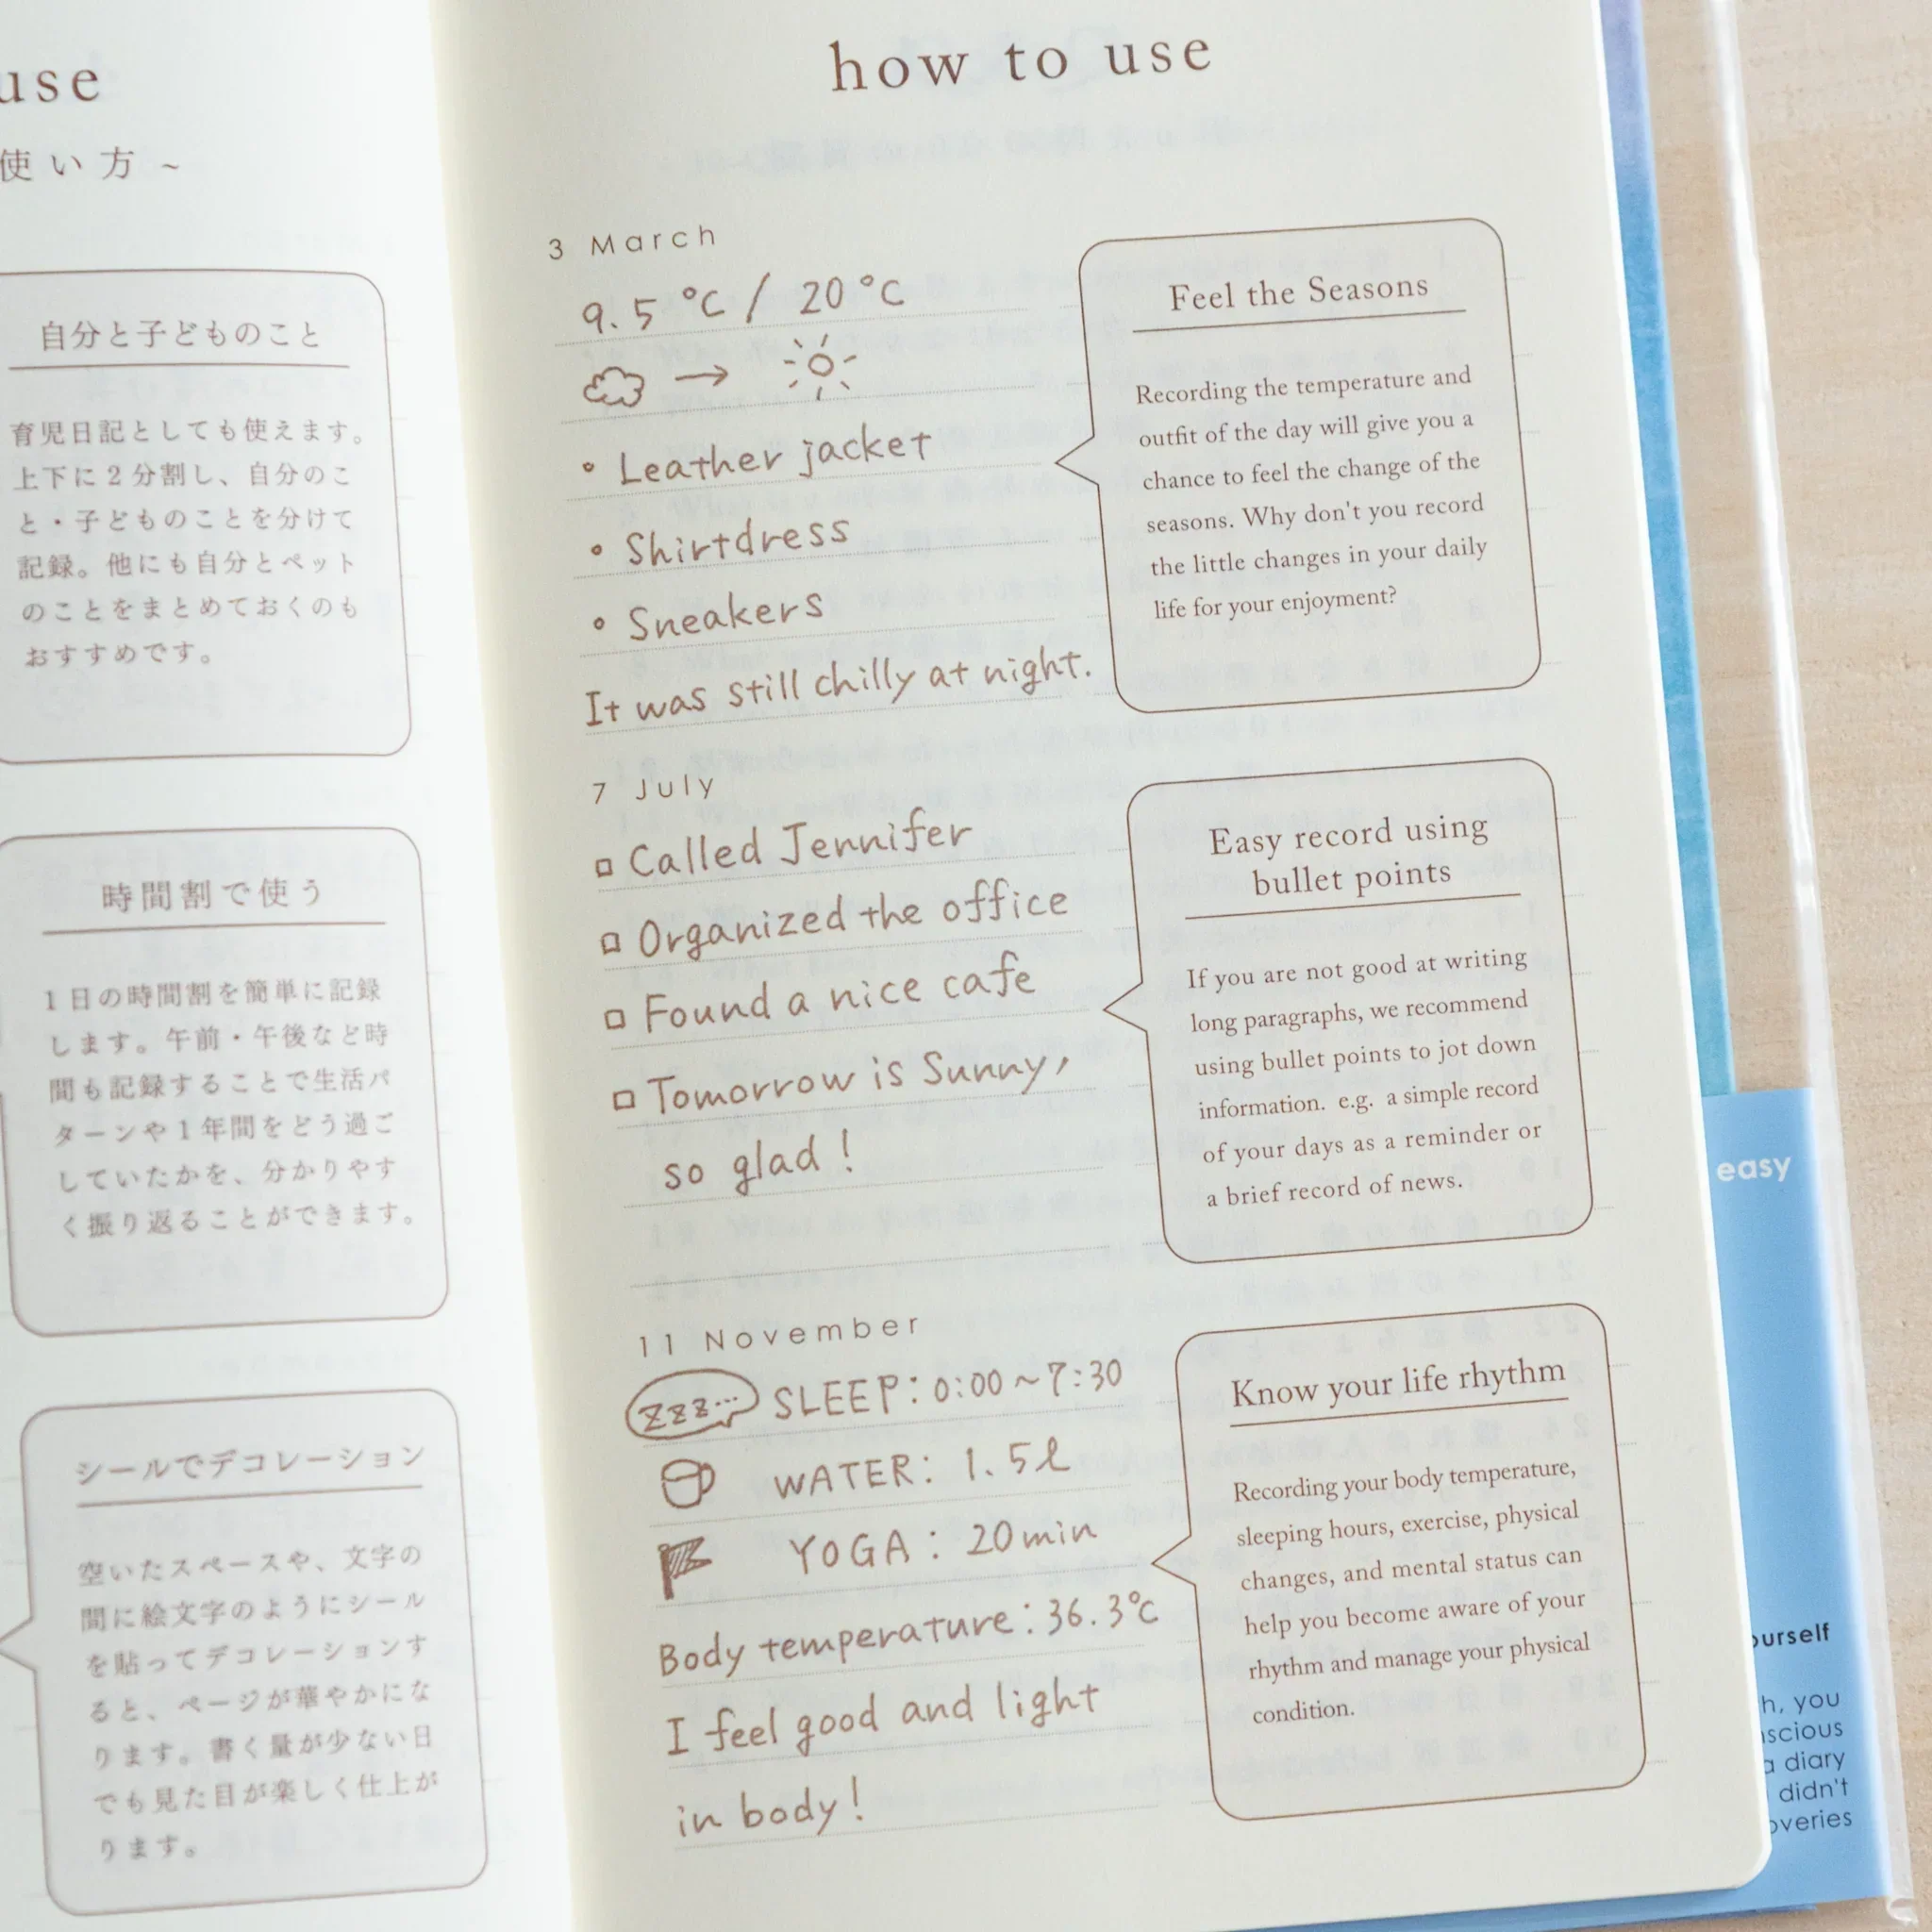 use
使い方~
自分と子どものこと
育児日記としても使えます。
上下に2分割し、自分のこ
と・子どものことを分けて
記録。他にも自分とペット
のことをまとめておくのも
おすすめです。
時間割で使う
1日の時間割を簡単に記録
します。午前・午後など時
間も記録することで生活パ
ターンや1年間をどう過ご
していたかを、分かりやす
く振り返ることができます。
シールでデコレーション
空いたスペースや、文字の
間に絵文字のようにシール
を貼ってデコレーションす
ると、ページが華やかにな
ります。書く量が少ない日
でも見た目が楽しく仕上が
ります。
how to use
3 March
9.5 ℃ / 20 ℃
→
• Leather jacket
• Shirtdress
• Sneakers
It was still chilly at night.
Feel the Seasons
Recording the temperature and
outfit of the day will give you a
chance to feel the change of the
seasons. Why don't you record
the little changes in your daily
life for your enjoyment?
7 July
□ Called Jennifer
□ Organized the office
□ Found a nice cafe
□ Tomorrow is Sunny,
so glad!
Easy record using
bullet points
If you are not good at writing
long paragraphs, we recommend
using bullet points to jot down
information. e.g. a simple record
of your days as a reminder or
a brief record of news.
11 November
zzz... SLEEP: 0:00~7:30
WATER: 1.5ℓ
YOGA: 20min
Body temperature: 36.3℃
I feel good and light
in body!
Know your life rhythm
Recording your body temperature,
sleeping hours, exercise, physical
changes, and mental status can
help you become aware of your
rhythm and manage your physical
condition.
easy
ourself
h, you
scious
a diary
didn't
overies